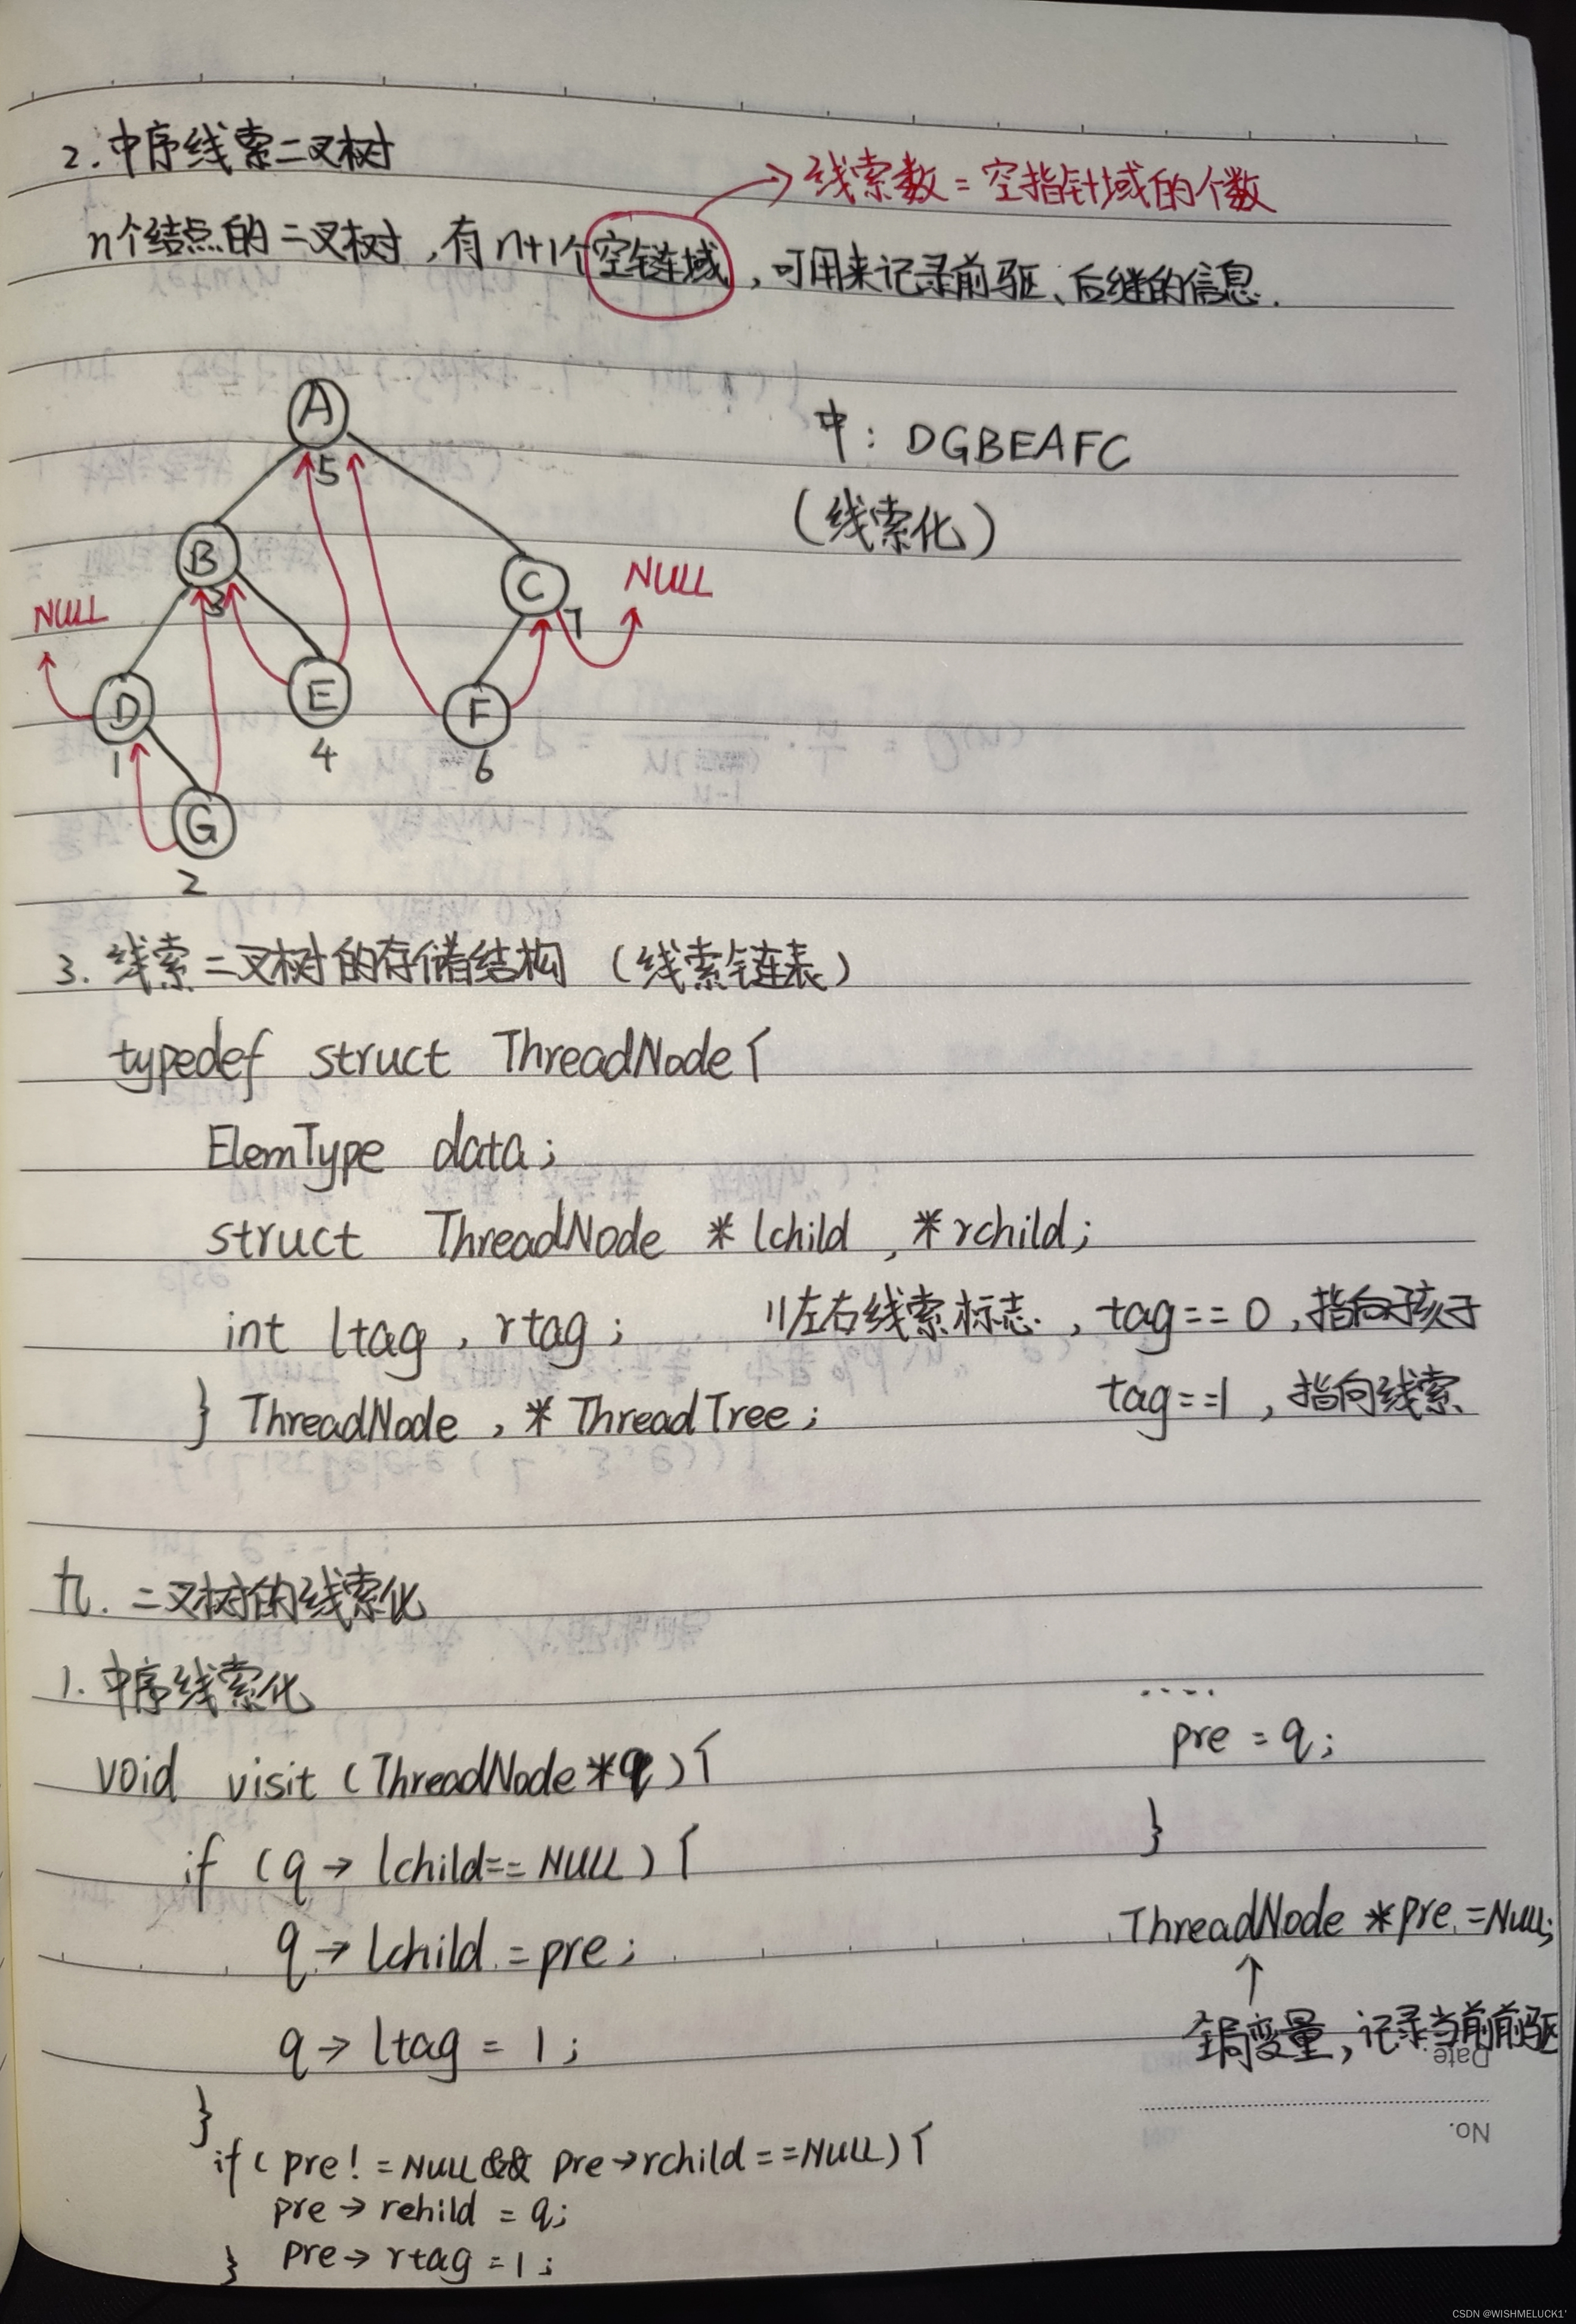 2.中序线索二叉树
→线索数=空指针域的个数
n个结点的二叉树,有n+1个空链域,可用来记录前驱、后继的信息.
A
5
中: DGBEAFC
(线索化)
B
3
C
7
NULL
NULL
D
1
E
4
F
6
G
2
3. 线索二叉树的存储结构 (线索链表)
typedef struct ThreadNode{
ElemType data;
struct ThreadNode *lchild , *rchild;
int ltag , rtag; //左右线索标志. , tag==0,指向孩子
tag==1 ,指向线索
} ThreadNode , * ThreadTree;
九. 二叉树的线索化
1. 中序线索化
void visit (ThreadNode *q){
if (q→lchild==NULL){
q→lchild=pre;
q→ltag=1;
}
if(pre!=NULL && pre→rchild==NULL){
pre→rehild = q;
} pre→rtag=1;
....
pre = q;
}
ThreadNode *pre=NULL;
↑
全局变量,记录当前前驱
Date.
No.
CSDN @WISHMELUCK1'